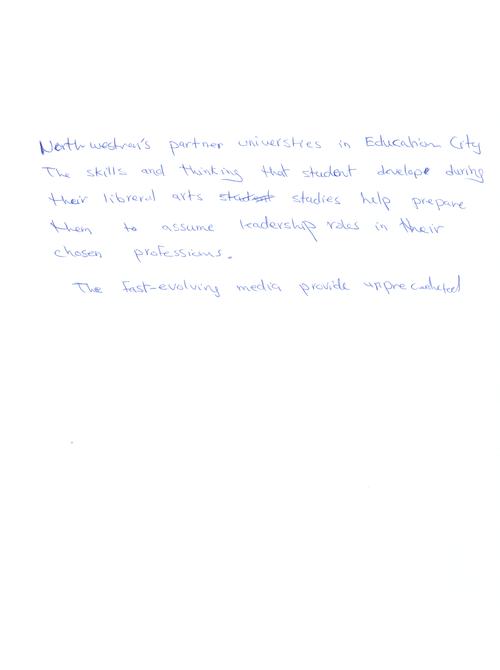 Northwestren's partner universties in Education City
The skills and thinking that student develope during
their libreral arts studies help prepare
them to assume leadership roles in their
chosen professions.
The fast-evolving media provide